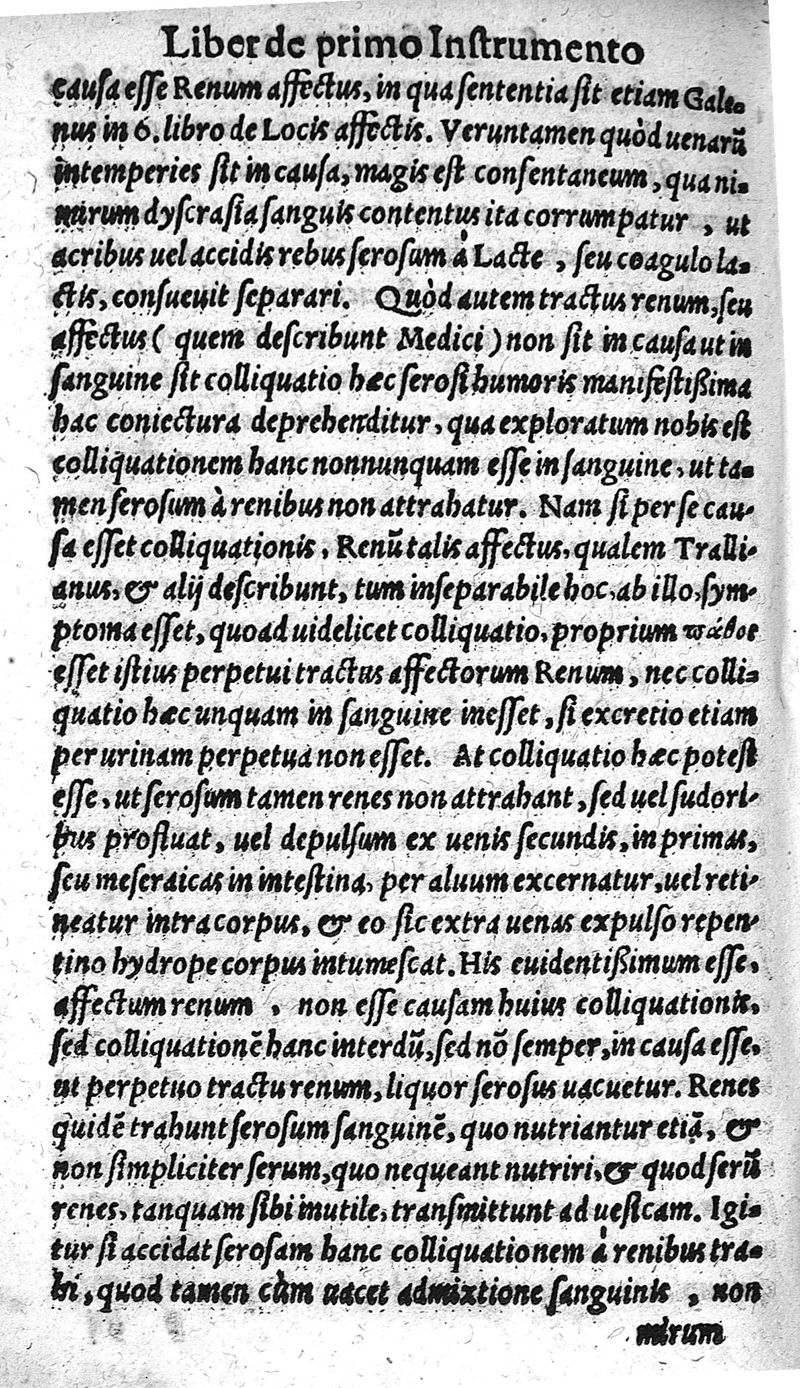 Liber de primo Instrumento
causa esse Renum affectus, in qua sententia sit etiam Gale-
nus in 6. libro de Locis affectis. Veruntamen quòd uenarũ
intemperies sit in causa, magis est consentaneum, qua ni-
mirum dyscrasia sanguis contentus ita corrumpatur, ut
acribus uel accidis rebus serosum à Lacte, seu coagulo la-
ctis, consueuit separari. Quòd autem tractus renum, seu
affectus ( quem describunt Medici ) non sit in causa ut in
sanguine sit colliquatio hæc serosi humoris manifestißima
hac coniectura deprehenditur, qua exploratum nobis est
colliquationem hanc nonnunquam esse in sanguine, ut ta-
men serosum à renibus non attrahatur. Nam si per se cau-
sa esset colliquationis, Renũ talis affectus, qualem Tralli-
anus, & alij describunt, tum inseparabile hoc, ab illo, sym-
ptoma esset, quoad uidelicet colliquatio, proprium πάθος
esset istius perpetui tractus affectorum Renum, nec colli-
quatio hæc unquam in sanguine inesset, si excretio etiam
per urinam perpetua non esset. At colliquatio hæc potest
esse, ut serosum tamen renes non attrahant, sed uel sudori-
bus profluat, uel depulsum ex uenis secundis, in primas,
seu meseraicas in intestina, per aluum excernatur, uel reti-
neatur intra corpus, & eo sic extra uenas expulso repen-
tino hydrope corpus intumescat. His euidentißimum esse,
affectum renum, non esse causam huius colliquationis,
sed colliquationẽ hanc interdũ, sed nõ semper, in causa esse,
ut perpetuo tractu renum, liquor serosus uacuetur. Renes
quidẽ trahunt serosum sanguinẽ, quo nutriantur etiã, &
non simpliciter serum, quo nequeant nutriri, & quod serũ
renes, tanquam sibi inutile, transmittunt ad uesicam. Igi-
tur si accidat serosam hanc colliquationem à renibus tra-
hi, quod tamen cùm uacet admixtione sanguinis, non
mirum